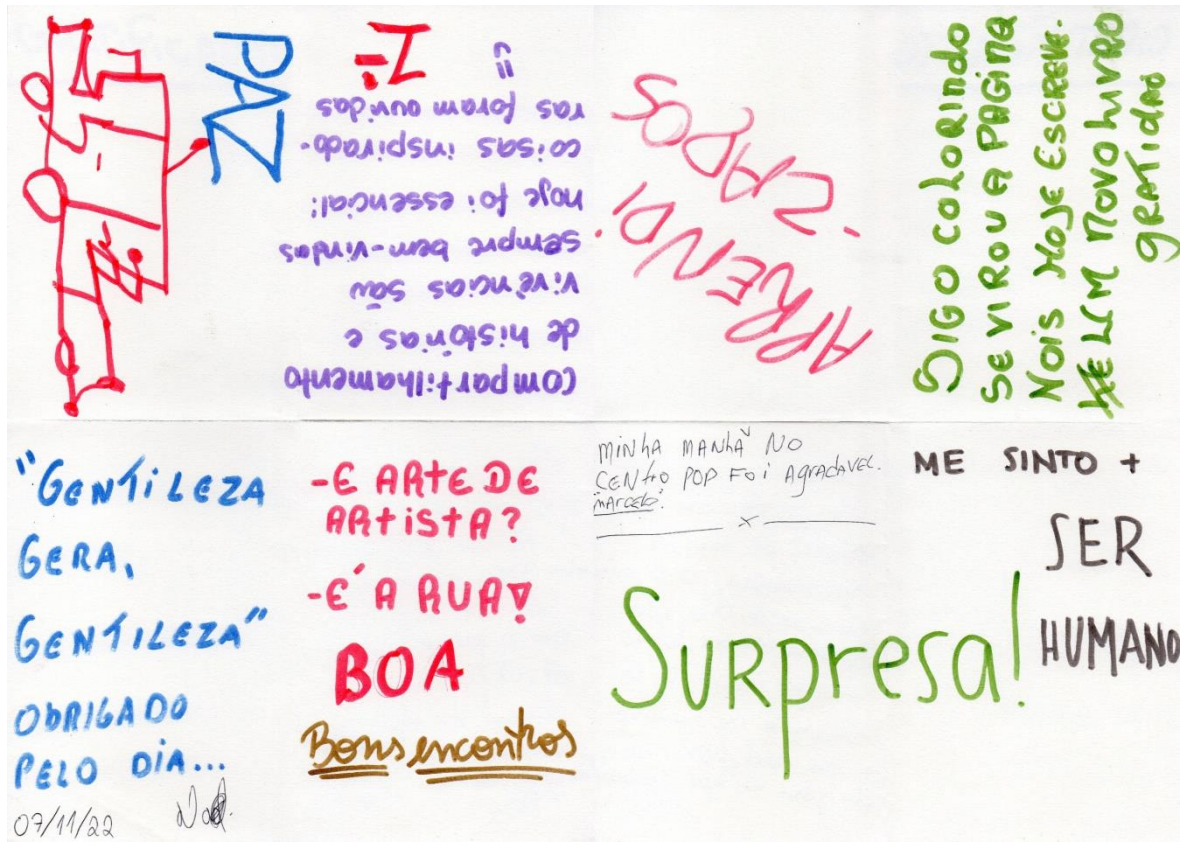 PAZ
compartilhamento
de histórias e
vivências são
sempre bem-vindas
hoje foi essencial!
coisas inspirado-
ras foram ouvidas
=)
APRENDI
ZADOS
SIGO COLORINDO
SE VIROU A PAGINA
NOIS HOJE ESCREVE.
UM NOVO LIVRO
GRATIDÃO
"GENTILEZA
GERA,
GENTILEZA"
OBRIGADO
PELO DIA...
07/11/22
-E ARTE DE
ARTISTA?
-E' A RUA!
BOA
Bons encontros
MINHA MANHÃ NO
CENTRO POP FOI AGRADAVEL.
"MARCELO".
x
Surpresa!
ME SINTO +
SER
HUMANO